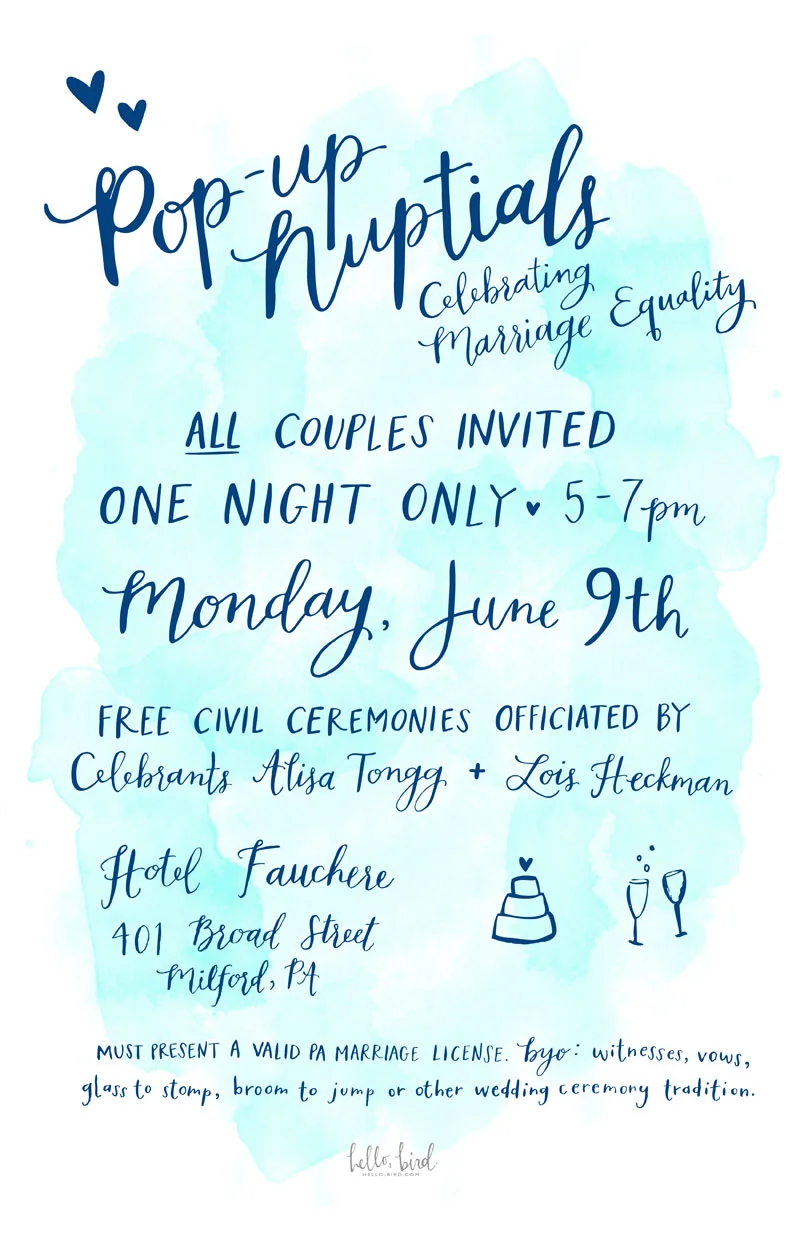 Pop-up
Nuptials
Celebrating
Marriage Equality
ALL COUPLES INVITED
ONE NIGHT ONLY ♥ 5-7pm
Monday, June 9th
FREE CIVIL CEREMONIES OFFICIATED BY
Celebrants Alisa Tongg + Lois Heckman
Hotel Fauchere
401 Broad Street
Milford, PA
MUST PRESENT A VALID PA MARRIAGE LICENSE. byo: witnesses, vows,
glass to stomp, broom to jump or other wedding ceremony tradition.
hello, bird.
HELLO-BIRD.COM